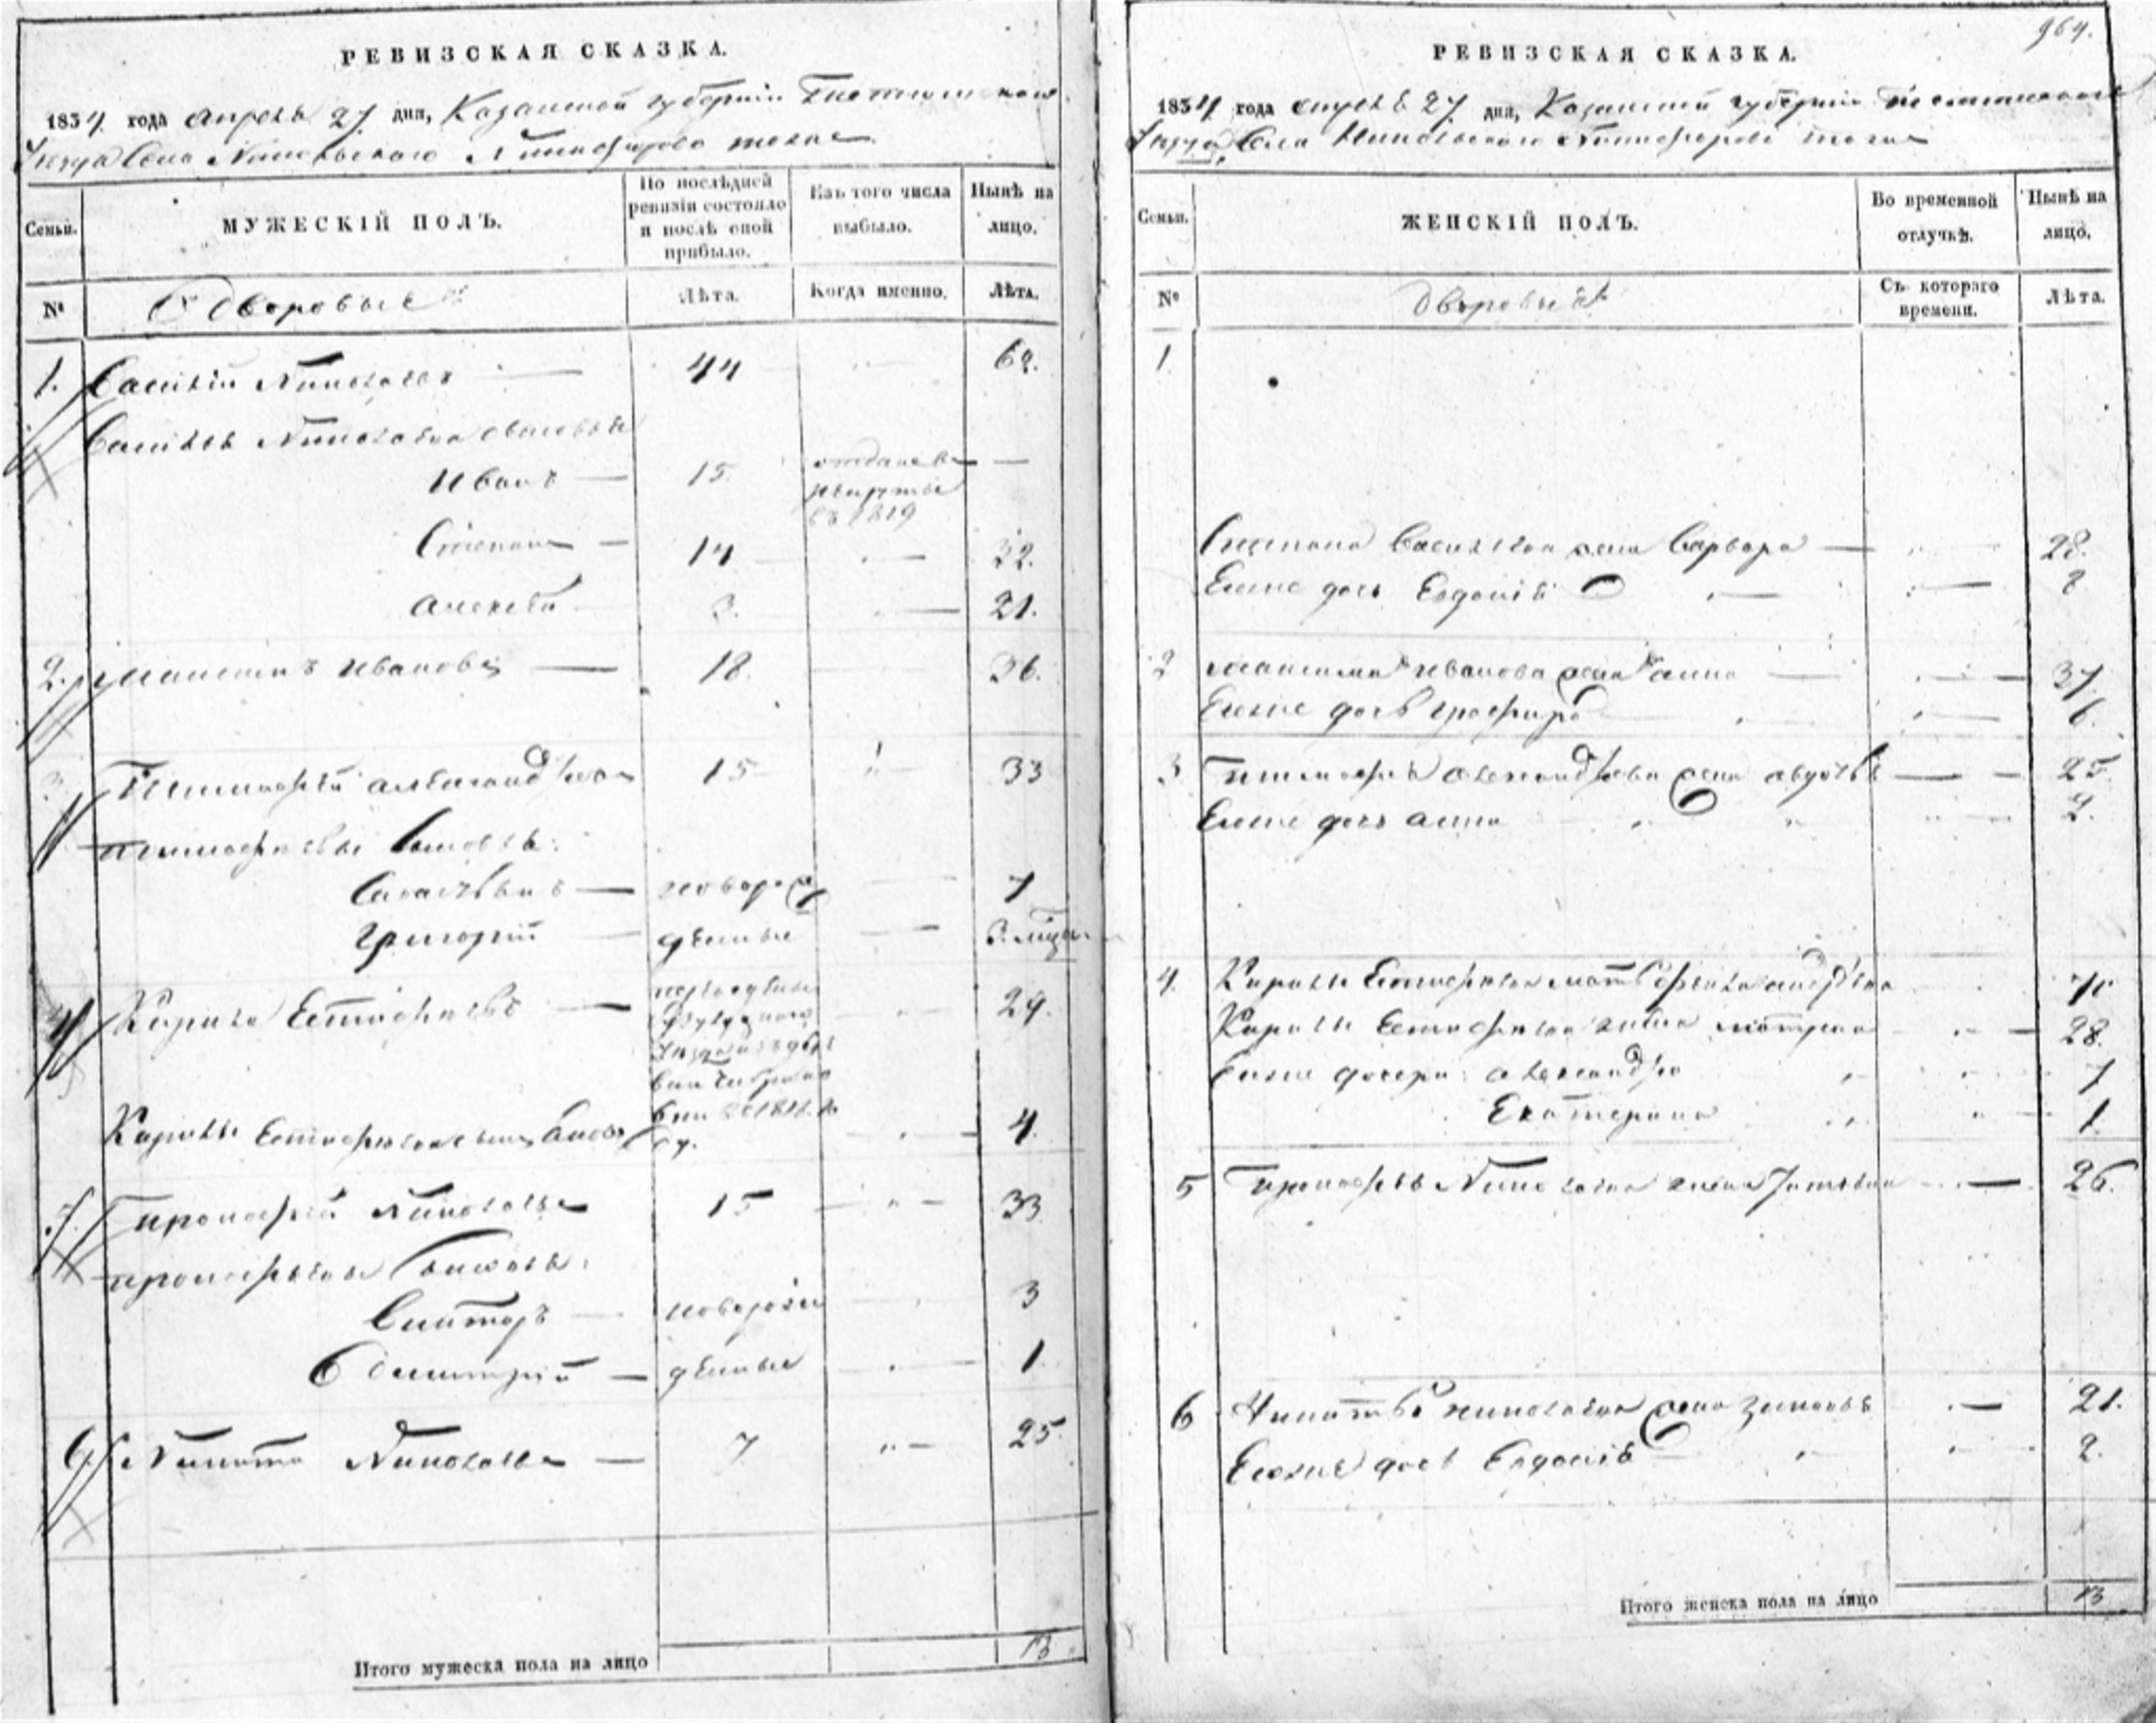 РЕВИЗСКАЯ СКАЗКА.
1834 года апреля 27 дня, Казанской губернии
уезда Села Никольского Никифорово тожъ
Семьи.
МУЖЕСКІЙ ПОЛЪ.
По послѣдней ревизіи состояло и послѣ оной прибыло.
Изъ того числа выбыло.
Нынѣ на лицо.
№
Дворовые
Лѣта.
Когда именно.
Лѣта.
1. Василій Николаевъ 44 62.
Василья Николаева сыновья
Иванъ 15. отданъ въ рекруты въ 1819
Степанъ 14 32.
Алексѣй 3. 21.
2. Максимъ Ивановъ 18. 36.
3 Тимофей Александровъ 15 33
Тимофеевы сыновья:
новорож 7
Григорій денные 3. мѣся.
4 Кирила Естифеевъ 29.
Кирилы Естифеева сынъ 4.
5. Прокофей Николаевъ 15 33
Прокофьевы сыновья:
Викторъ новорож 3
Димитрій денные 1.
6 Никита Николаевъ 7 25
Итого мужеска пола на лицо 13
964.
РЕВИЗСКАЯ СКАЗКА.
1834 года апреля 27 дня, Казанской губернии
уезда Села Никольского Никифорово тожъ
Семьи.
ЖЕНСКІЙ ПОЛЪ.
Во временной отлучкѣ.
Нынѣ на лицо.
№
Дворовые
Съ котораго времени.
Лѣта.
1
Степана Васильева жена Варвара 28.
Ево же дочь Евдокія
2 Максима Иванова жена Анна 37.
Ево же дочь 6.
3 Тимофея Александрова жена Авдотья 25.
Ево же дочь Анна 2.
4. Кирилы Естифеева мать
Кирилы Естифеева жена Матрена 28.
Ево же дочери: Александра 7
Екатерина 1.
5 Прокофья Николаева жена Татьяна 26.
6 Никиты Николаева жена Зиновья 21.
Ево же дочь Евдокія 2.
Итого женска пола на лицо 13